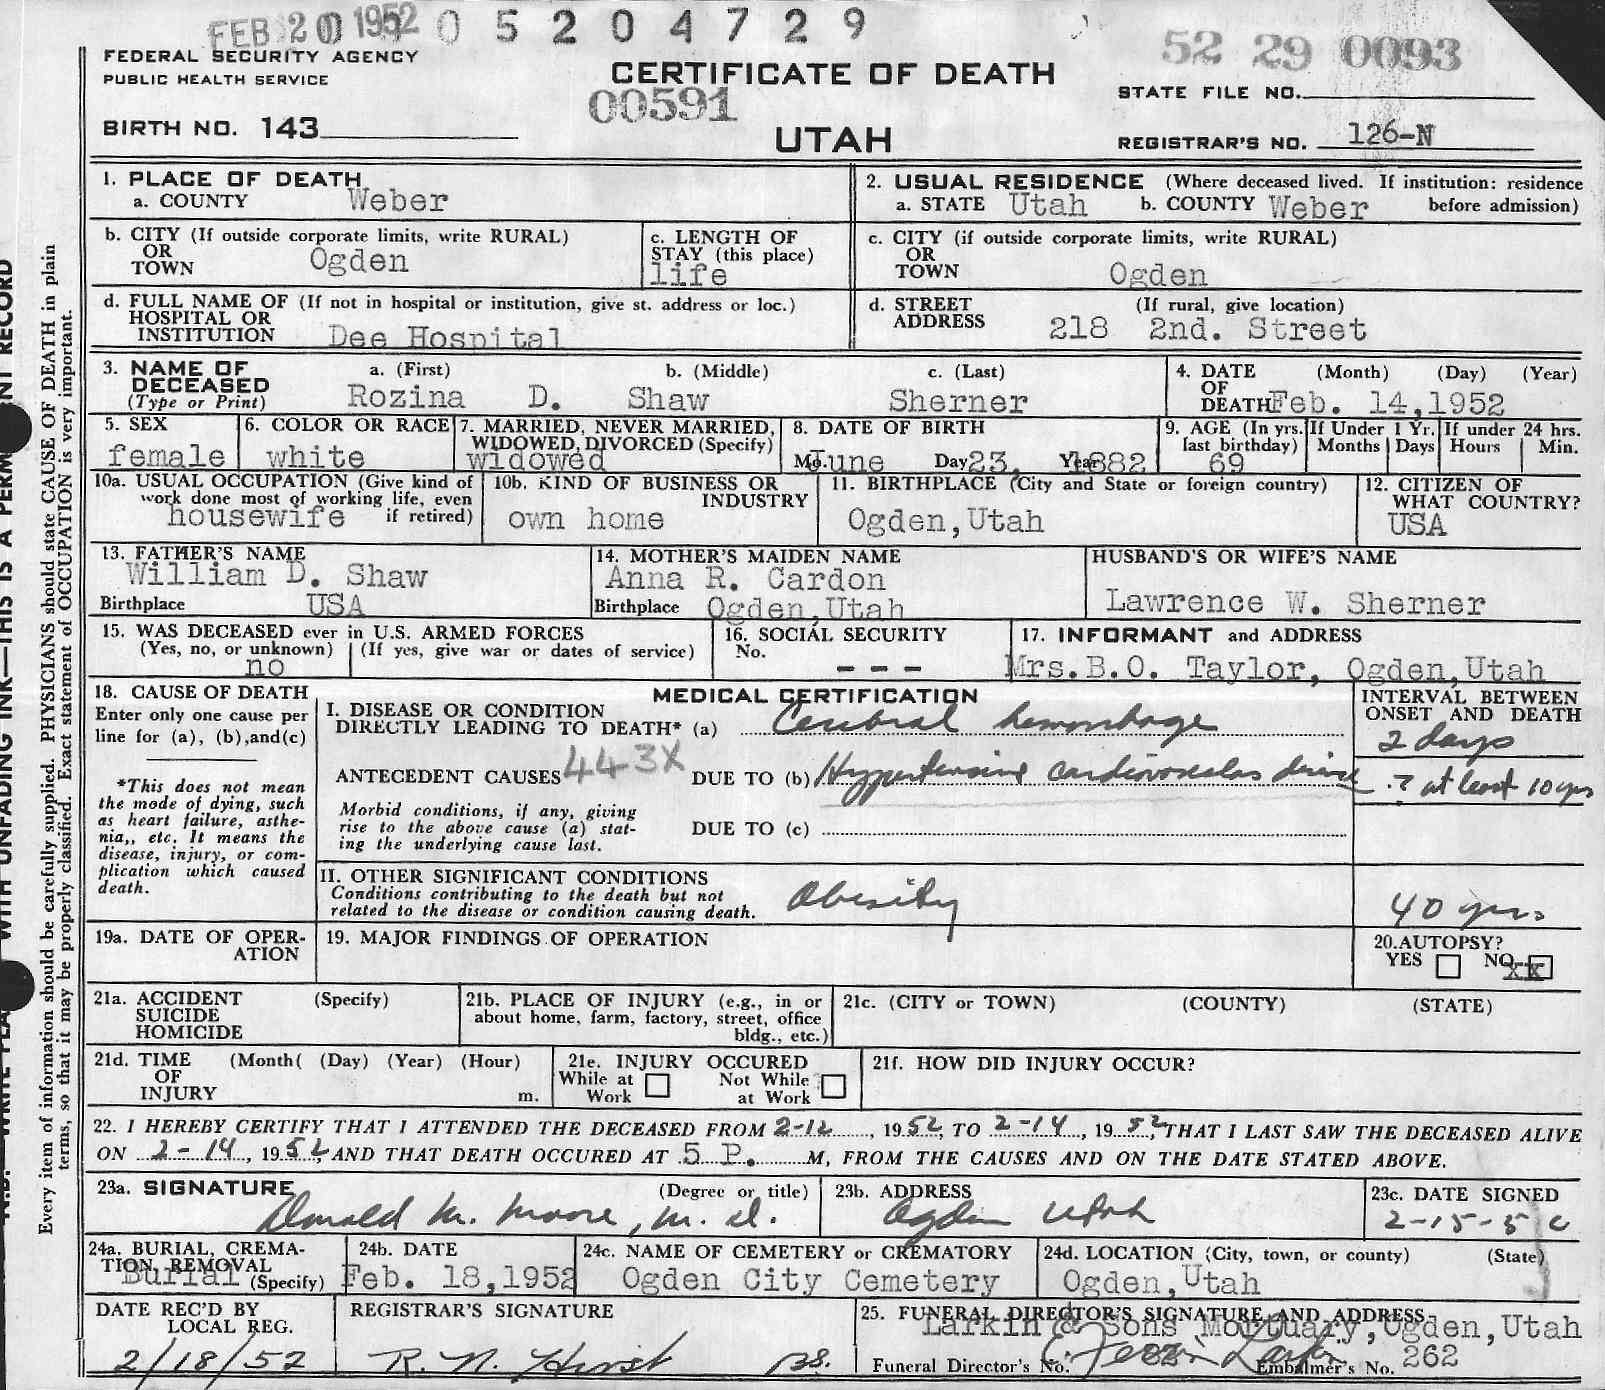 FEB 20 1952 0 5 2 0 4 7 2 9
52 29 0093
FEDERAL SECURITY AGENCY
PUBLIC HEALTH SERVICE
CERTIFICATE OF DEATH
STATE FILE NO.
00591
BIRTH NO. 143
UTAH
REGISTRAR'S NO. 126-N
1. PLACE OF DEATH
a. COUNTY Weber
2. USUAL RESIDENCE (Where deceased lived. If institution: residence
a. STATE Utah b. COUNTY Weber before admission)
b. CITY (If outside corporate limits, write RURAL)
OR
TOWN Ogden
c. LENGTH OF
STAY (this place)
life
c. CITY (if outside corporate limits, write RURAL)
OR
TOWN Ogden
d. FULL NAME OF (If not in hospital or institution, give st. address or loc.)
HOSPITAL OR
INSTITUTION Dee Hospital
d. STREET (If rural, give location)
ADDRESS 218 2nd. Street
3. NAME OF a. (First) b. (Middle) c. (Last)
DECEASED
(Type or Print) Rozina D. Shaw Sherner
4. DATE (Month) (Day) (Year)
OF
DEATH Feb. 14,1952
5. SEX
female
6. COLOR OR RACE
white
7. MARRIED, NEVER MARRIED,
WIDOWED, DIVORCED (Specify)
widowed
8. DATE OF BIRTH
Mo. June Day 23, Year 1882
9. AGE (In yrs.
last birthday)
69
If Under 1 Yr.
Months Days
If under 24 hrs.
Hours Min.
10a. USUAL OCCUPATION (Give kind of
work done most of working life, even
housewife if retired)
10b. KIND OF BUSINESS OR
INDUSTRY
own home
11. BIRTHPLACE (City and State or foreign country)
Ogden,Utah
12. CITIZEN OF
WHAT COUNTRY?
USA
13. FATHER'S NAME
William D. Shaw
Birthplace USA
14. MOTHER'S MAIDEN NAME
Anna R. Cardon
Birthplace Ogden,Utah
HUSBAND'S OR WIFE'S NAME
Lawrence W. Sherner
15. WAS DECEASED ever in U.S. ARMED FORCES
(Yes, no, or unknown) (If yes, give war or dates of service)
no
16. SOCIAL SECURITY
No. ---
17. INFORMANT and ADDRESS
Mrs.B.O. Taylor, Ogden,Utah
18. CAUSE OF DEATH
Enter only one cause per
line for (a), (b),and(c)
*This does not mean
the mode of dying, such
as heart failure, asthe-
nia,, etc. It means the
disease, injury, or com-
plication which caused
death.
MEDICAL CERTIFICATION
I. DISEASE OR CONDITION
DIRECTLY LEADING TO DEATH* (a) Cerebral hemorrhage
ANTECEDENT CAUSES 443X DUE TO (b) Hypertensive cardiovascular disease
Morbid conditions, if any, giving
rise to the above cause (a) stat-
ing the underlying cause last.
DUE TO (c)
INTERVAL BETWEEN
ONSET AND DEATH
2 days
? at least 10 yrs
II. OTHER SIGNIFICANT CONDITIONS
Conditions contributing to the death but not
related to the disease or condition causing death.
Obesity
40 yrs
19a. DATE OF OPER-
ATION
19. MAJOR FINDINGS OF OPERATION
20.AUTOPSY?
YES NO xx
21a. ACCIDENT (Specify)
SUICIDE
HOMICIDE
21b. PLACE OF INJURY (e.g., in or
about home, farm, factory, street, office
bldg., etc.)
21c. (CITY or TOWN) (COUNTY) (STATE)
21d. TIME (Month( (Day) (Year) (Hour)
OF
INJURY m.
21e. INJURY OCCURED
While at Not While
Work at Work
21f. HOW DID INJURY OCCUR?
22. I HEREBY CERTIFY THAT I ATTENDED THE DECEASED FROM 2-12, 1952, TO 2-14, 1952, THAT I LAST SAW THE DECEASED ALIVE
ON 2-14, 1952, AND THAT DEATH OCCURED AT 5 P. M, FROM THE CAUSES AND ON THE DATE STATED ABOVE.
23a. SIGNATURE (Degree or title)
Donald M. Moore, M.D.
23b. ADDRESS
Ogden Utah
23c. DATE SIGNED
2-15-5
24a. BURIAL, CREMA-
TION, REMOVAL
Burial (Specify)
24b. DATE
Feb. 18,1952
24c. NAME OF CEMETERY or CREMATORY
Ogden City Cemetery
24d. LOCATION (City, town, or county) (State)
Ogden,Utah
DATE REC'D BY
LOCAL REG.
2/18/52
REGISTRAR'S SIGNATURE
R. N. Hirst
25. FUNERAL DIRECTOR'S SIGNATURE AND ADDRESS
Larkin & Sons Mortuary,Ogden,Utah
Funeral Director's No. Embalmer's No. 262
Every item of information should be carefully supplied. PHYSICIANS should state CAUSE OF DEATH in plain
terms, so that it may be properly classified. Exact statement of OCCUPATION is very important.
WITH UNFADING INK—THIS IS A
RECORD